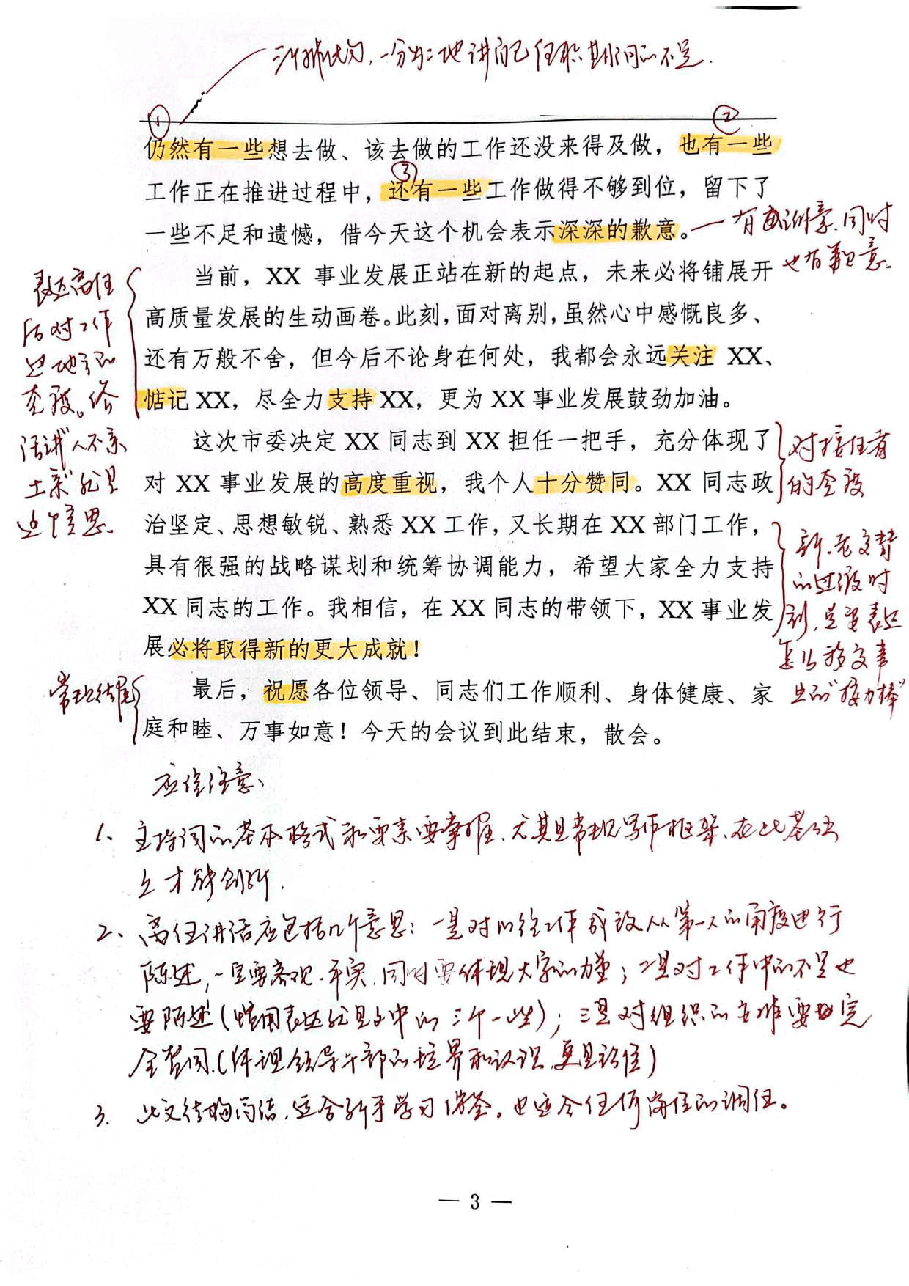 三个排比句,一分为二地讲自己任职期间的不足.
① ②
仍然有一些想去做、该去做的工作还没来得及做，也有一些
③
工作正在推进过程中，还有一些工作做得不够到位，留下了
一些不足和遗憾，借今天这个机会表示深深的歉意。
有感谢意,同时
也有歉意。
当前，XX 事业发展正站在新的起点，未来必将铺展开
高质量发展的生动画卷。此刻，面对离别，虽然心中感慨良多、
还有万般不舍，但今后不论身在何处，我都会永远关注 XX、
惦记 XX，尽全力支持 XX，更为 XX 事业发展鼓劲加油。
表达离任
后对工作
过地方的
态度。俗
话讲"人不亲
土亲"就是
这个意思.
这次市委决定 XX 同志到 XX 担任一把手，充分体现了
对 XX 事业发展的高度重视，我个人十分赞同。XX 同志政
治坚定、思想敏锐、熟悉 XX 工作，又长期在 XX 部门工作，
具有很强的战略谋划和统筹协调能力，希望大家全力支持
XX 同志的工作。我相信，在 XX 同志的带领下，XX 事业发
展必将取得新的更大成就！
对接任者
的态度
新、老交替
的过渡时
刻,
怎么移交事
业的"接力棒"
最后，祝愿各位领导、同志们工作顺利、身体健康、家
庭和睦、万事如意！今天的会议到此结束，散会。
常规结尾
应信注意:
1、主持词的基本格式和要素要掌握,尤其是常规写作框架,在此基础
上才能创新.
2、离任讲话应包括几个意思：一是对以往工作 从第一人的角度进行
陈述,一定要客观、平实,同时要体现大家的力量；二是对工作中的不足也
要陈述(惯用表达就是文中的三个一些)；三是对组织的安排要 完
全赞同.(体现领导干部的境界和认识,更是 )
3. 此文结构简洁,适合新手学习借鉴,也适合任何岗位的调任。
— 3 —